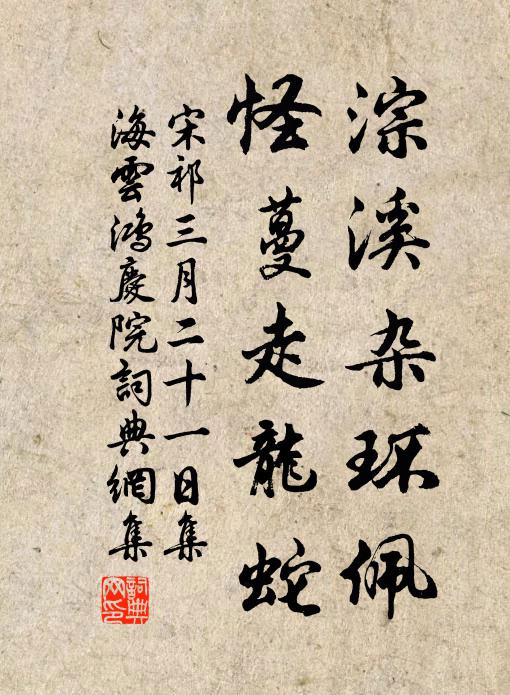 淙溪杂环佩
怪蔓走龍蛇
宋祁三月二十一日集
海雲鴻慶院詞典網集
詞典
网印